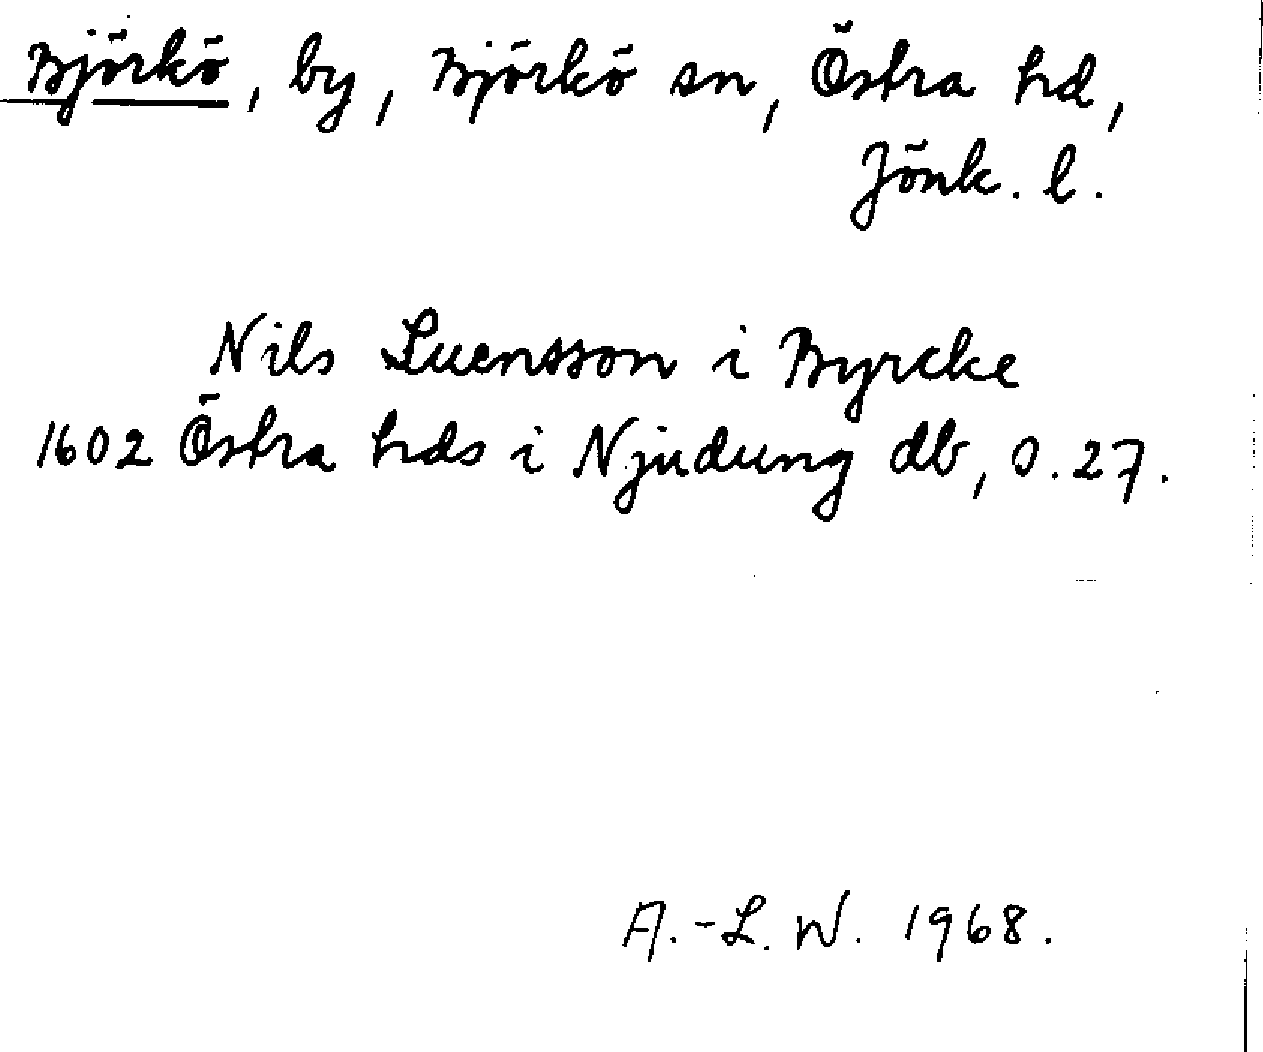 Björkö, by, Björkö sn, Östra hd,
Jönk. l.
Nils Suensson i Byrcke
1602 Östra hds i Njudung db, o. 27.
A.-L. W. 1968.